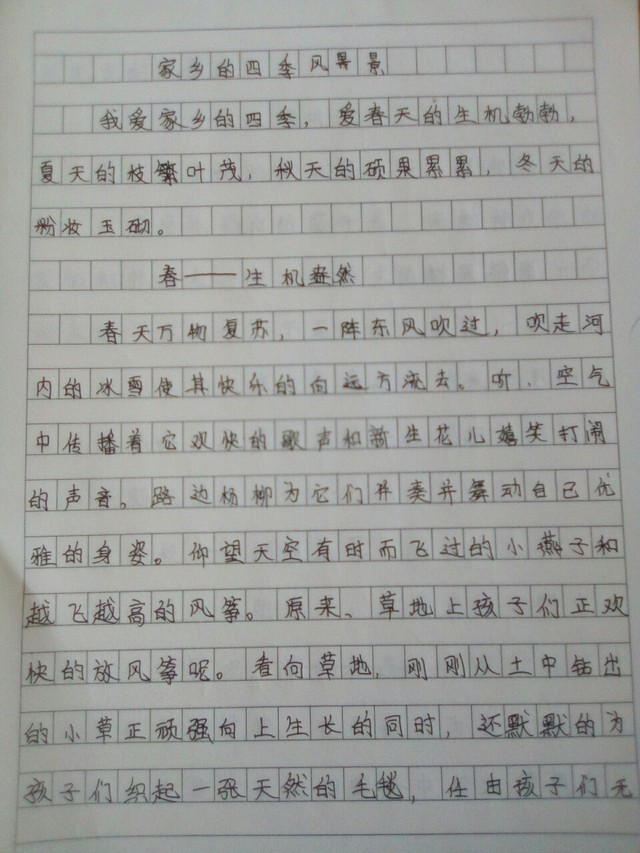 家乡的四季风景景
我爱家乡的四季，爱春天的生机勃勃，
夏天的枝繁叶茂，秋天的硕果累累，冬天的
粉妆玉砌。
春——生机盎然
春天万物复苏，一阵东风吹过，吹走河
内的冰雪使其快乐的向远方流去。听、空气
中传播着它欢快的歌声和新生花儿嬉笑打闹
的声音。路边杨柳为它们伴奏并舞动自己优
雅的身姿。仰望天空有时而飞过的小燕子和
越飞越高的风筝。原来、草地上孩子们正欢
快的放风筝呢。看向草地，刚刚从土中钻出
的小草正顽强向上生长的同时，还默默的为
孩子们织起一张天然的毛毯，任由孩子们无